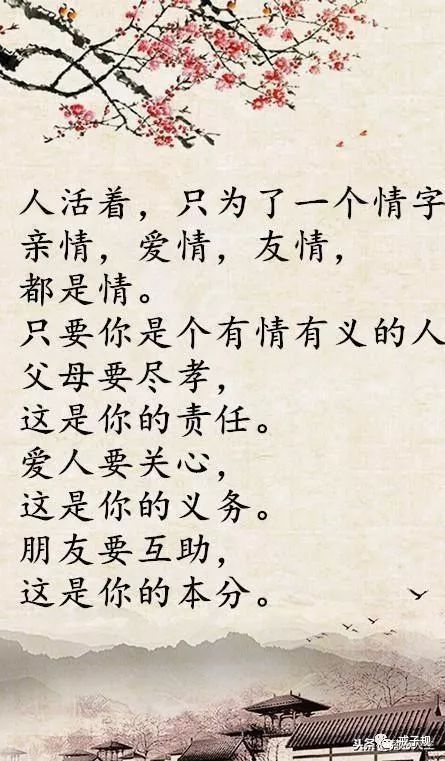 人活着，只为了一个情字
亲情，爱情，友情，
都是情。
只要你是个有情有义的人
父母要尽孝，
这是你的责任。
爱人要关心，
这是你的义务。
朋友要互助，
这是你的本分。
头条
戒子规